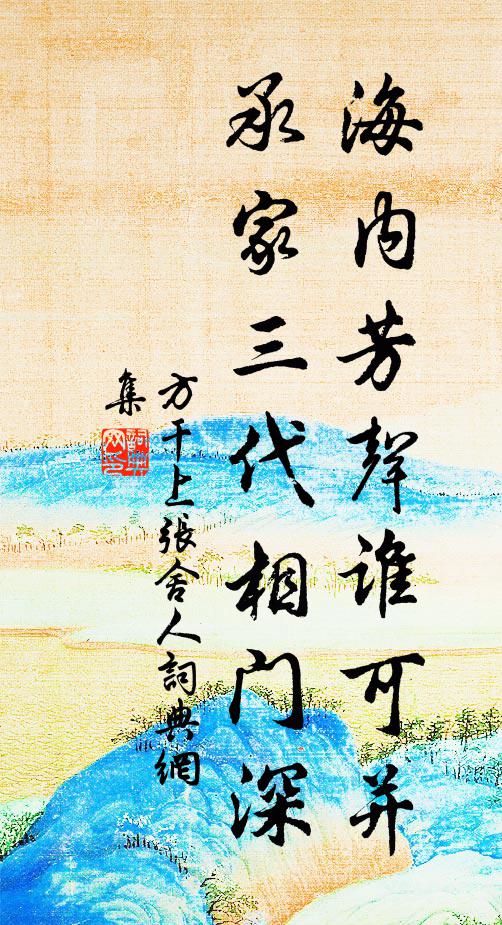 海内芳聲谁可并
承家三代相门深
方干上張舍人詞典網
集